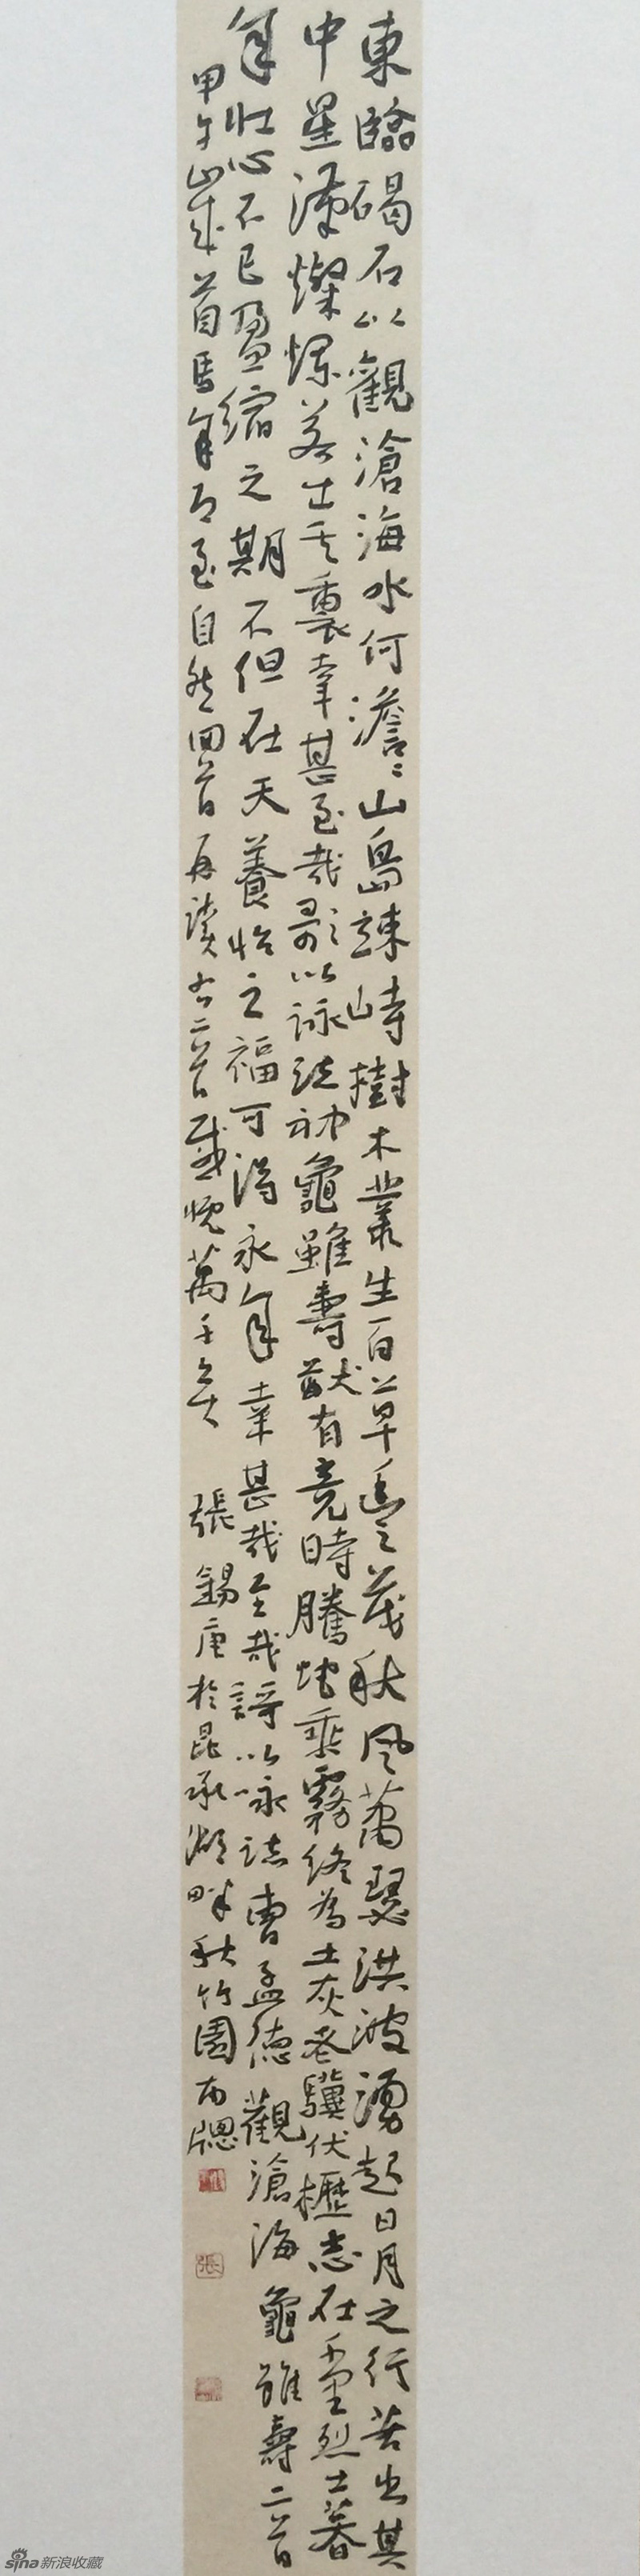 東臨碣石以觀滄海水何澹澹山島竦峙樹木叢生百草豐茂秋風蕭瑟洪波湧起日月之行若出其
中星漢燦爛若出其裏幸甚至哉歌以詠志神龜雖壽猷有竟時騰蛇乘霧終為土灰老驥伏櫪志在千里烈士暮
年壯心不已盈縮之期不但在天養怡之福可得永年幸甚哉至哉謌以詠志曹孟德觀滄海龜雖壽二首
甲午歲首馬年即至自然回首再讀古二首感慨萬千矣 張錫庚於昆承湖畔秋竹園南窗
張
sina新浪收藏